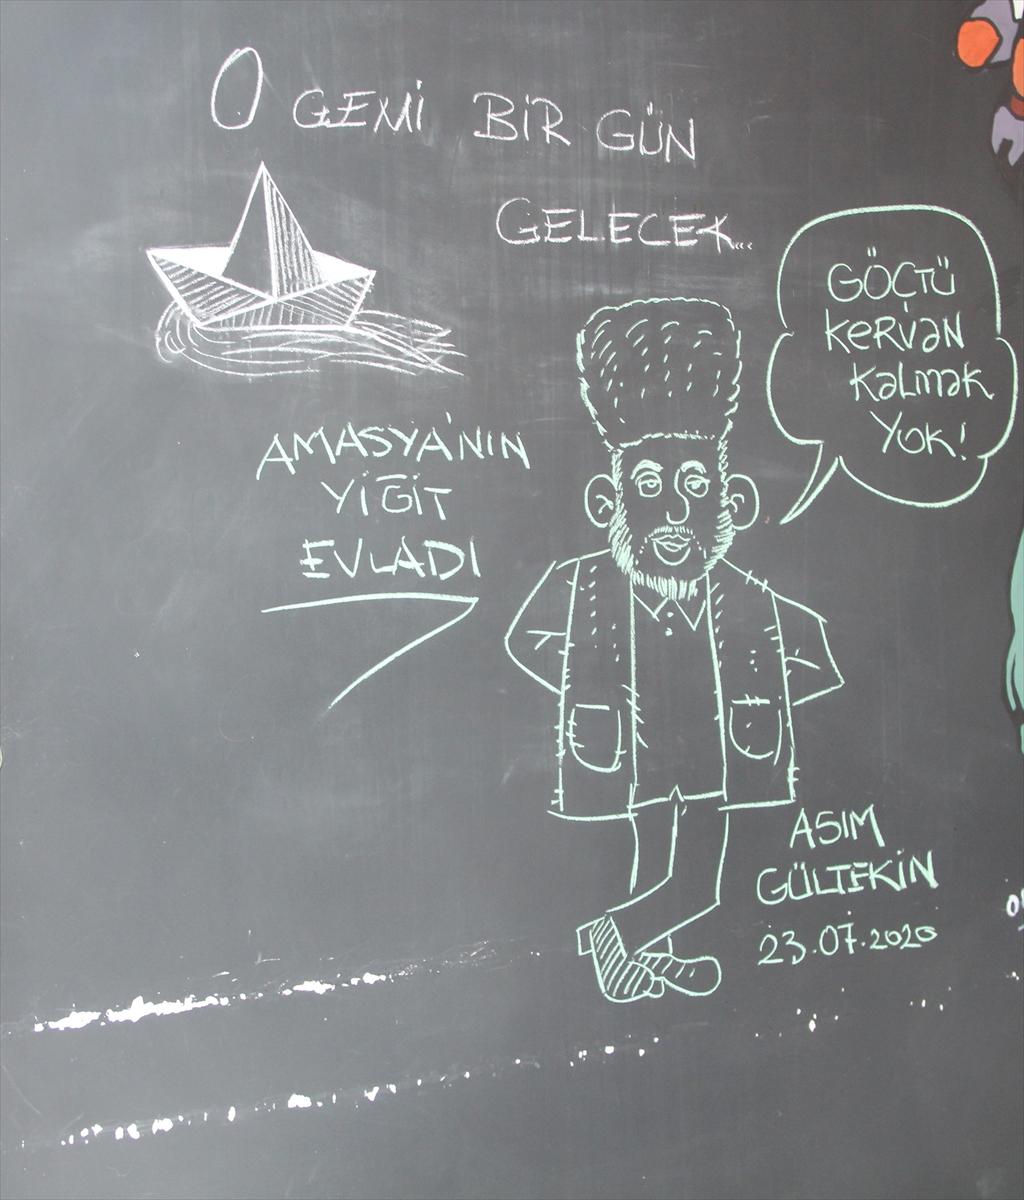 O GEMİ BİR GÜN
GELECEK...
GÖÇTÜ
KERVAN
KALMAK
YOK!
AMASYA'NIN
YİĞİT
EVLADI
ASIM
GÜLTEKİN
23.07.2020